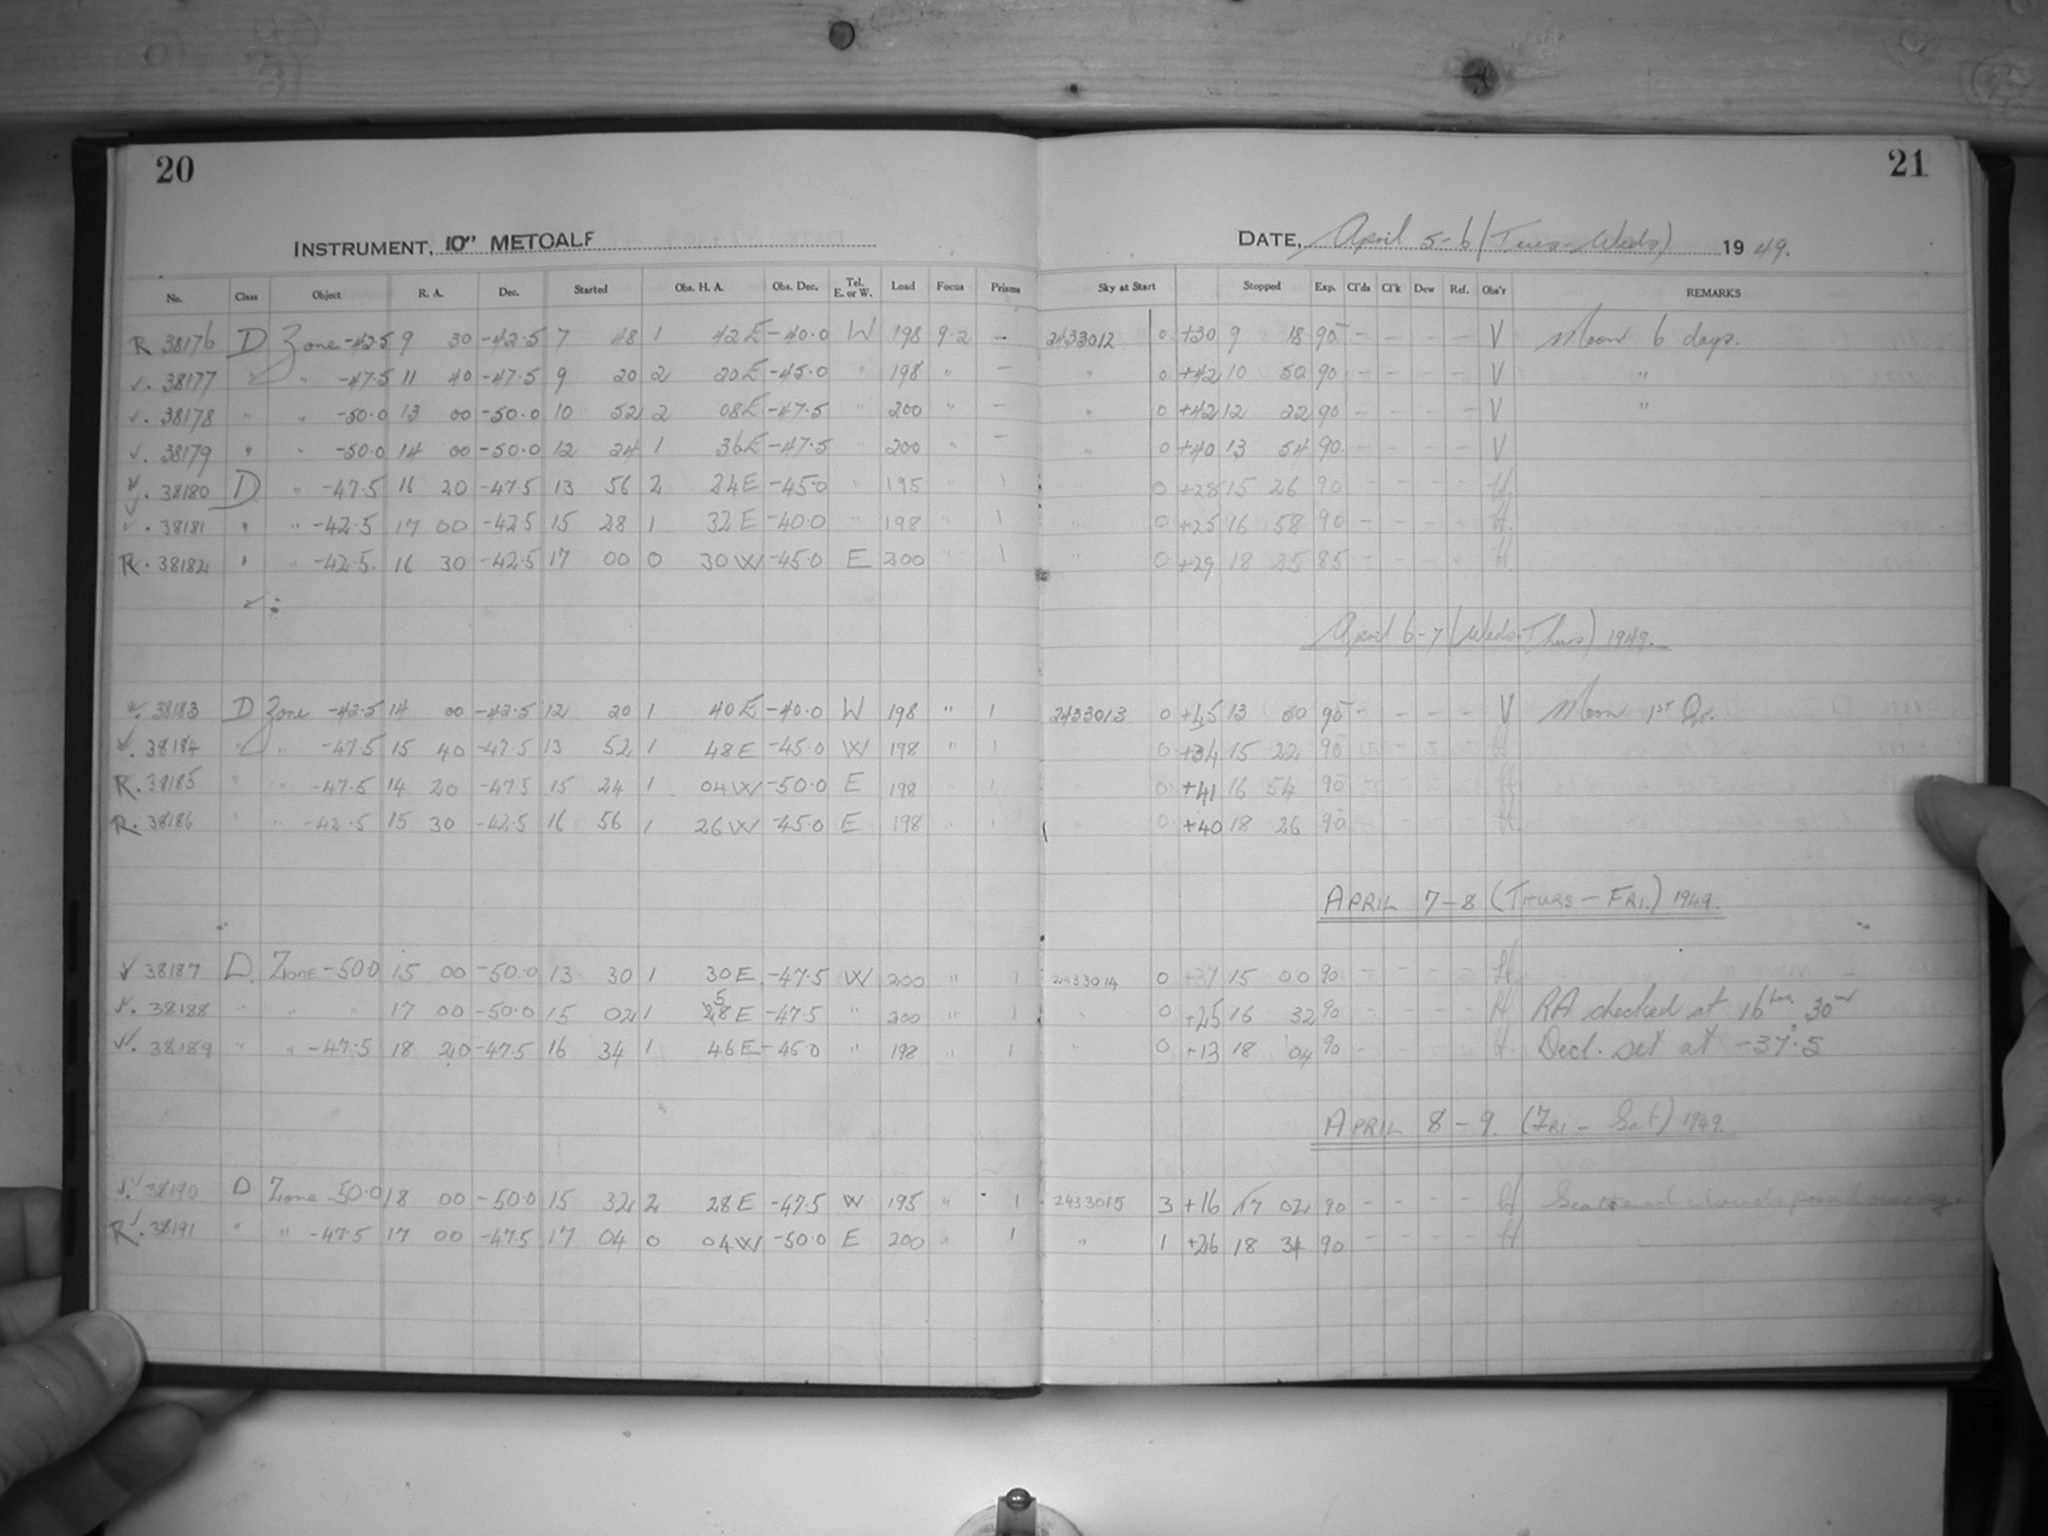 20
21
INSTRUMENT, 10" METCALF
DATE, April 5-6 (Tues-Weds) 1949.
No. Class Object R. A. Dec. Started Obs. H. A. Obs. Dec. Tel. E. or W. Load Focus Prisms Sky at Start Stopped Exp. Cl'ds Cl'k Dew Ref. Obs'r REMARKS
R 38176 D Zone -42.5 9 30 -42.5 7 48 1 42 E -40.0 W 198 9.2 - 2433012 0 +30 9 18 90 - - - - V Moon 6 days.
✓. 38177 " " -47.5 11 40 -47.5 9 20 2 20 E -45.0 " 198 " - " 0 +42 10 50 90 - - - - V "
✓. 38178 " " -50.0 13 00 -50.0 10 52 2 08 E -47.5 " 200 " - " 0 +42 12 22 90 - - - - V "
✓. 38179 " " -50.0 14 00 -50.0 12 24 1 36 E -47.5 " 200 " - " 0 +40 13 54 90 - - - - V
✓. 38180 D " -47.5 16 20 -47.5 13 56 2 24 E -45.0 " 195 " 1 " 0 +28 15 26 90 - - - - H
✓. 38181 " " -42.5 17 00 -42.5 15 28 1 32 E -40.0 " 198 " 1 " 0 +25 16 58 90 - - - - H.
R. 38182 " " -42.5. 16 30 -42.5 17 00 0 30 W -45.0 E 200 " 1 " 0 +29 18 25 85 - - - - H
April 6-7 (Weds-Thurs) 1949.
✓. 38183 D Zone -42.5 14 00 -42.5 12 20 1 40 E -40.0 W 198 " 1 2433013 0 +45 13 50 90 - - - - V Moon 1st Qr.
✓. 38184 " " -47.5 15 40 -47.5 13 52 1 48 E -45.0 W 198 " 1 0 +34 15 22 90 - - - - H
R. 38185 " " -47.5 14 20 -47.5 15 24 1 04 W -50.0 E 198 " 1 0 +41 16 54 90 - - - - H
R. 38186 " " -42.5 15 30 -42.5 16 56 1 26 W -45.0 E 198 " 1 " 0 +40 18 26 90 - - - - H
APRIL 7-8 (THURS-FRI.) 1949.
✓ 38187 D. Zone -50.0 15 00 -50.0 13 30 1 30 E. -47.5 W 200 " 1 2433014 0 +37 15 00 90 - - - - H.
✓. 38188 " " " 17 00 -50.0 15 02 1 58 E -47.5 " 200 " 1 " 0 +25 16 32 90 - - - - H RA checked at 16hrs 30m
✓. 38189 " " -47.5 18 20 -47.5 16 34 1 46 E -45.0 " 198 " 1 " 0 +13 18 04 90 - - - - H. Decl. set at -37°.5
APRIL 8-9. (FRI - Sat) 1949.
✓. 38190 D Zone -50.0 18 00 -50.0 15 32 2 28 E -47.5 W 195 " 1 2433015 3 +16 17 02 90 - - - - H Scattered clouds passed over
R. 38191 " " -47.5 17 00 -47.5 17 04 0 04 W -50.0 E 200 " 1 " 1 +26 18 34 90 - - - - H